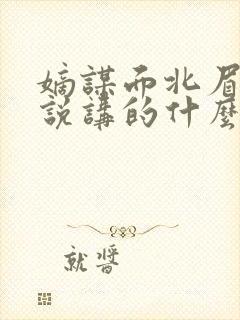 嫡謀而北眉
説講的什麼
就醬